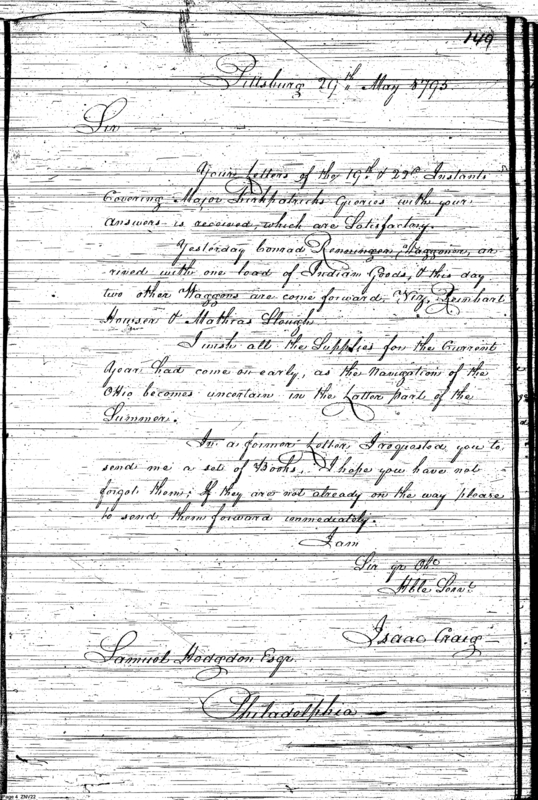 149
Pittsburg 29th May 1795.
Sir
Your Letters of the 19th & 22d Instants
Covering Major Kirkpatricks Queries with your
answers is received, which are Satisfactory.
Yesterday Conrad Renninger, Waggoner, ar
rived with one load of Indian Goods, & this day
two other Waggons are come forward, Viz, Reinhart
Howser & Mathias Slough
I wish all the Supplies for the Current
Year had come on early, as the Navigation of the
Ohio becomes uncertain in the Latter part of the
Summer.
In a former Letter, I requested you to
send me a set of Books. I hope you have not
forgot them; If they are not already on the way please
to send them forward immediately.
I am
Sir yr Obt
Hble Servt
Isaac Craig
Samuel Hodgdon Esqr.
Philadelphia